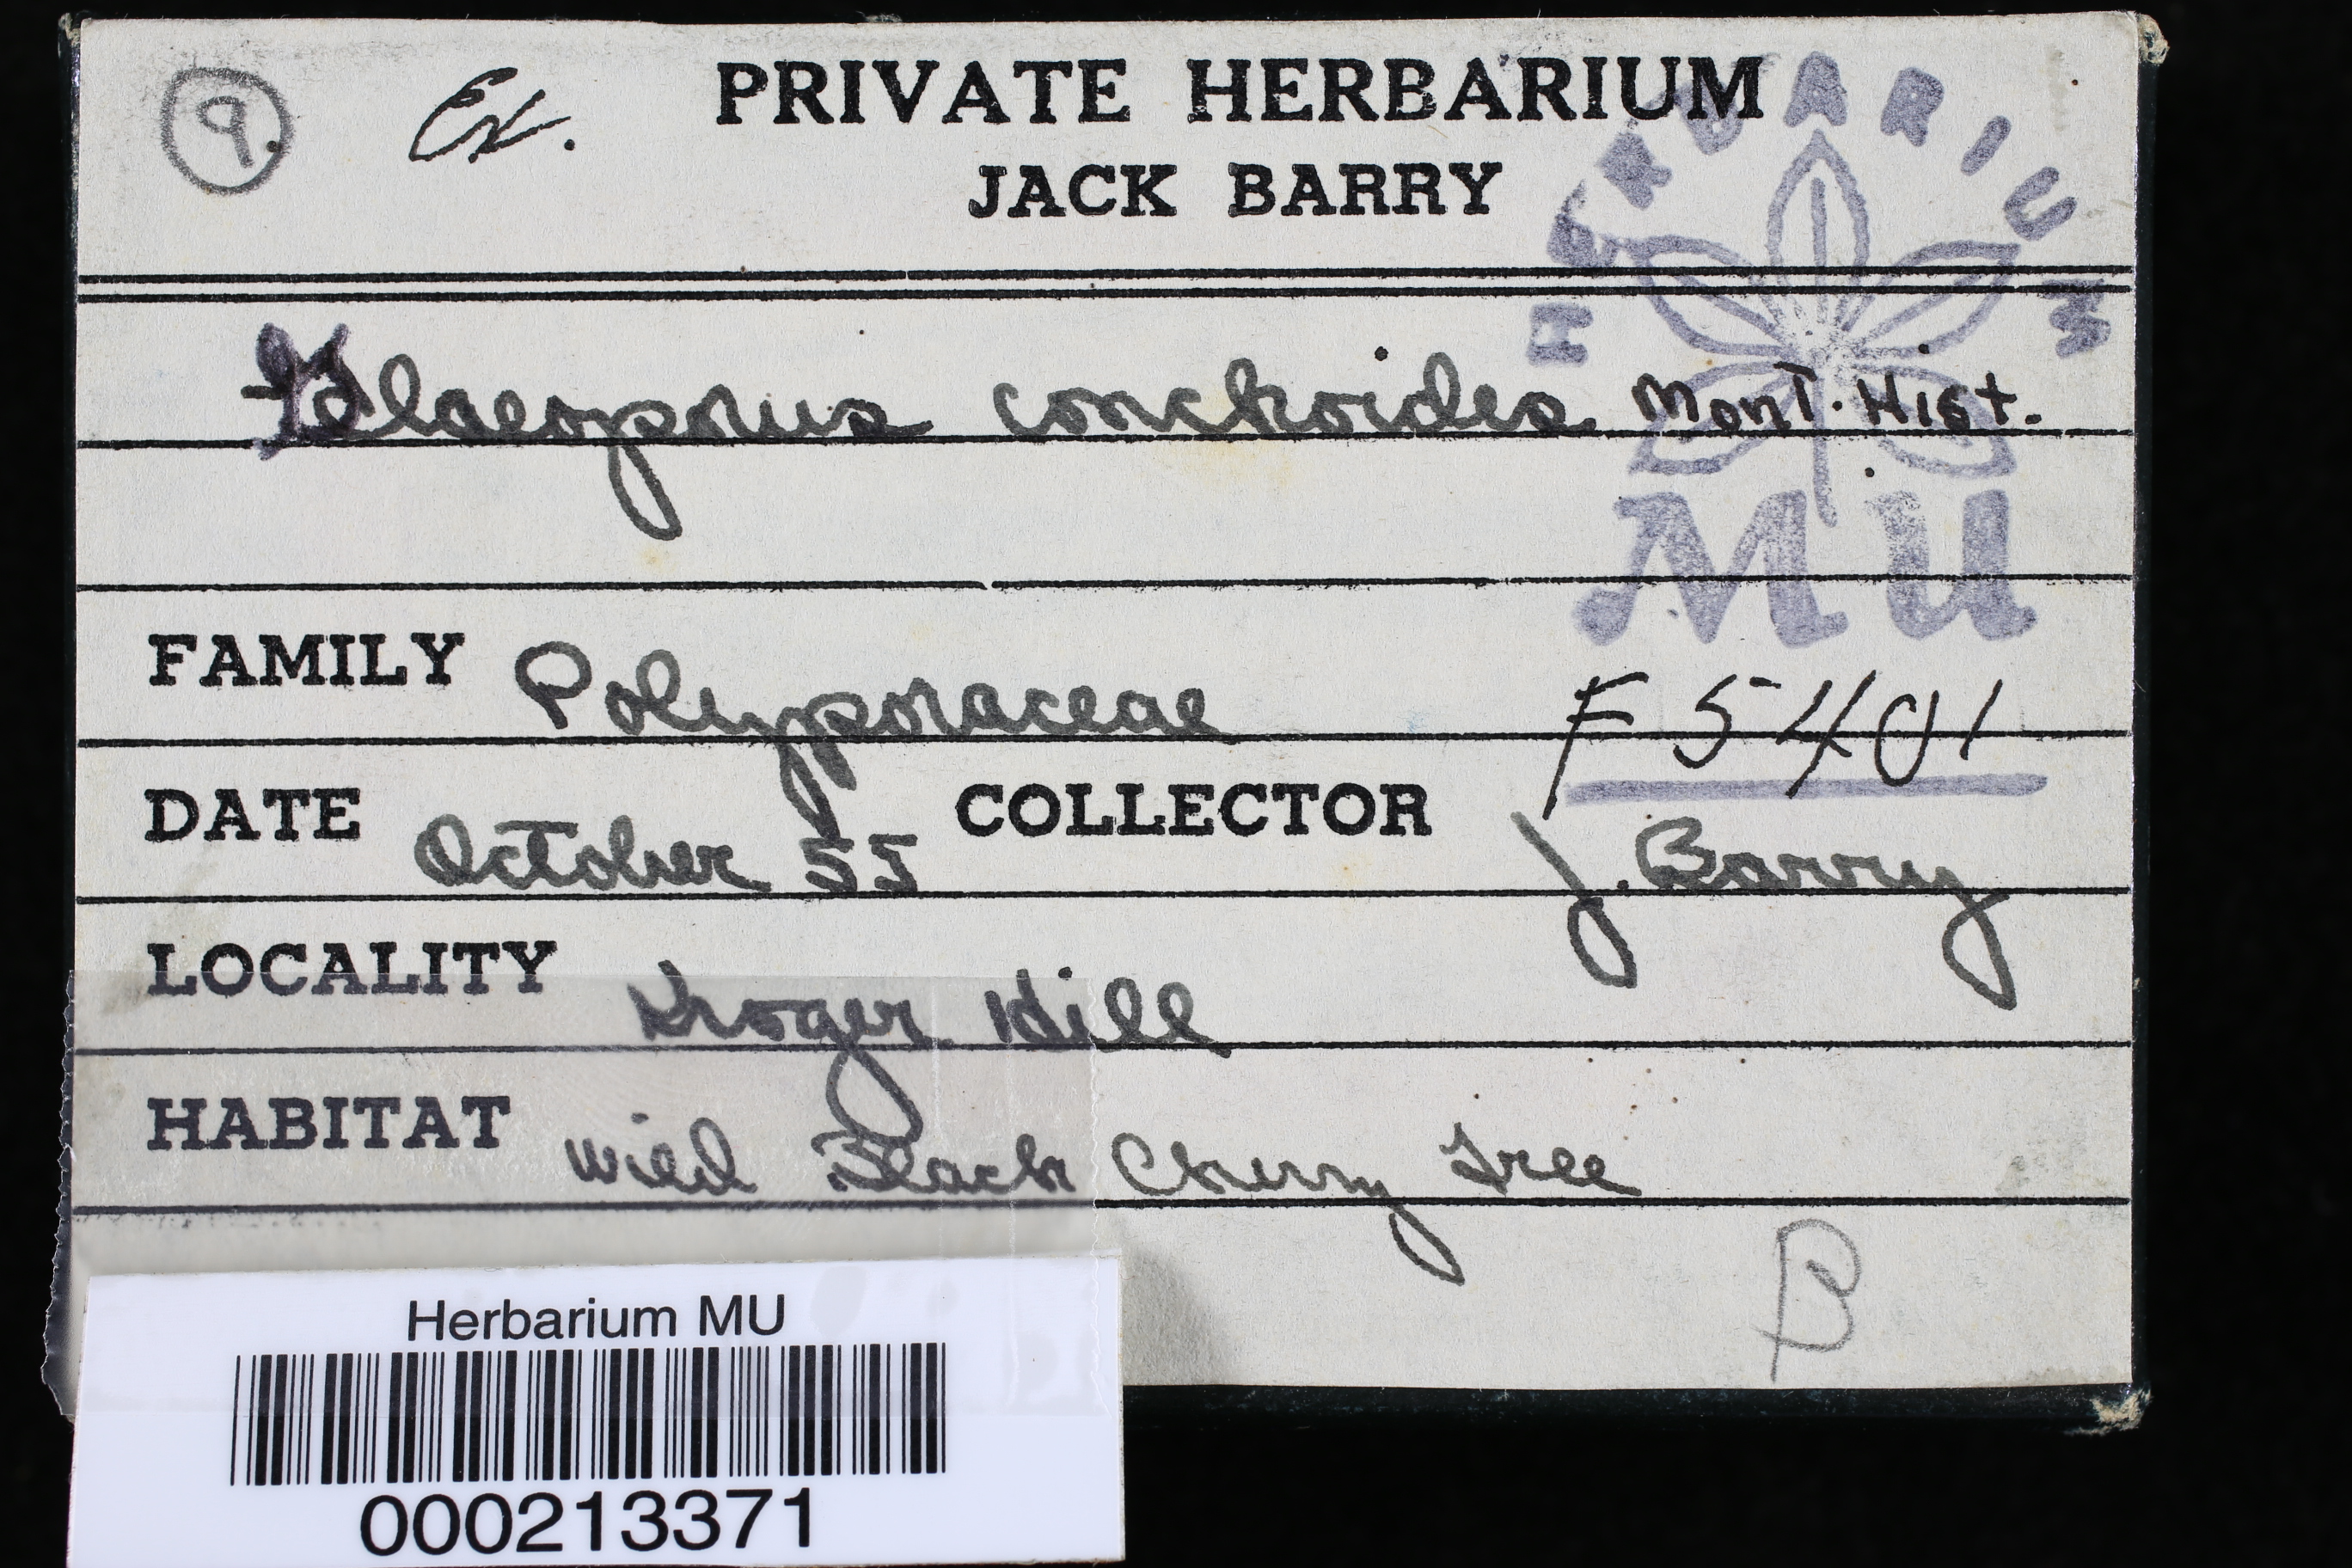 9. Ex. PRIVATE HERBARIUM
JACK BARRY
HERBARIUM
Glaeoporus conchoides Mont. Hist.
MU
FAMILY Polyporaceae
F 5401
DATE October 55 COLLECTOR J. Barry
LOCALITY Kroger Hill
HABITAT Wild Black Cherry Tree
B
Herbarium MU
000213371